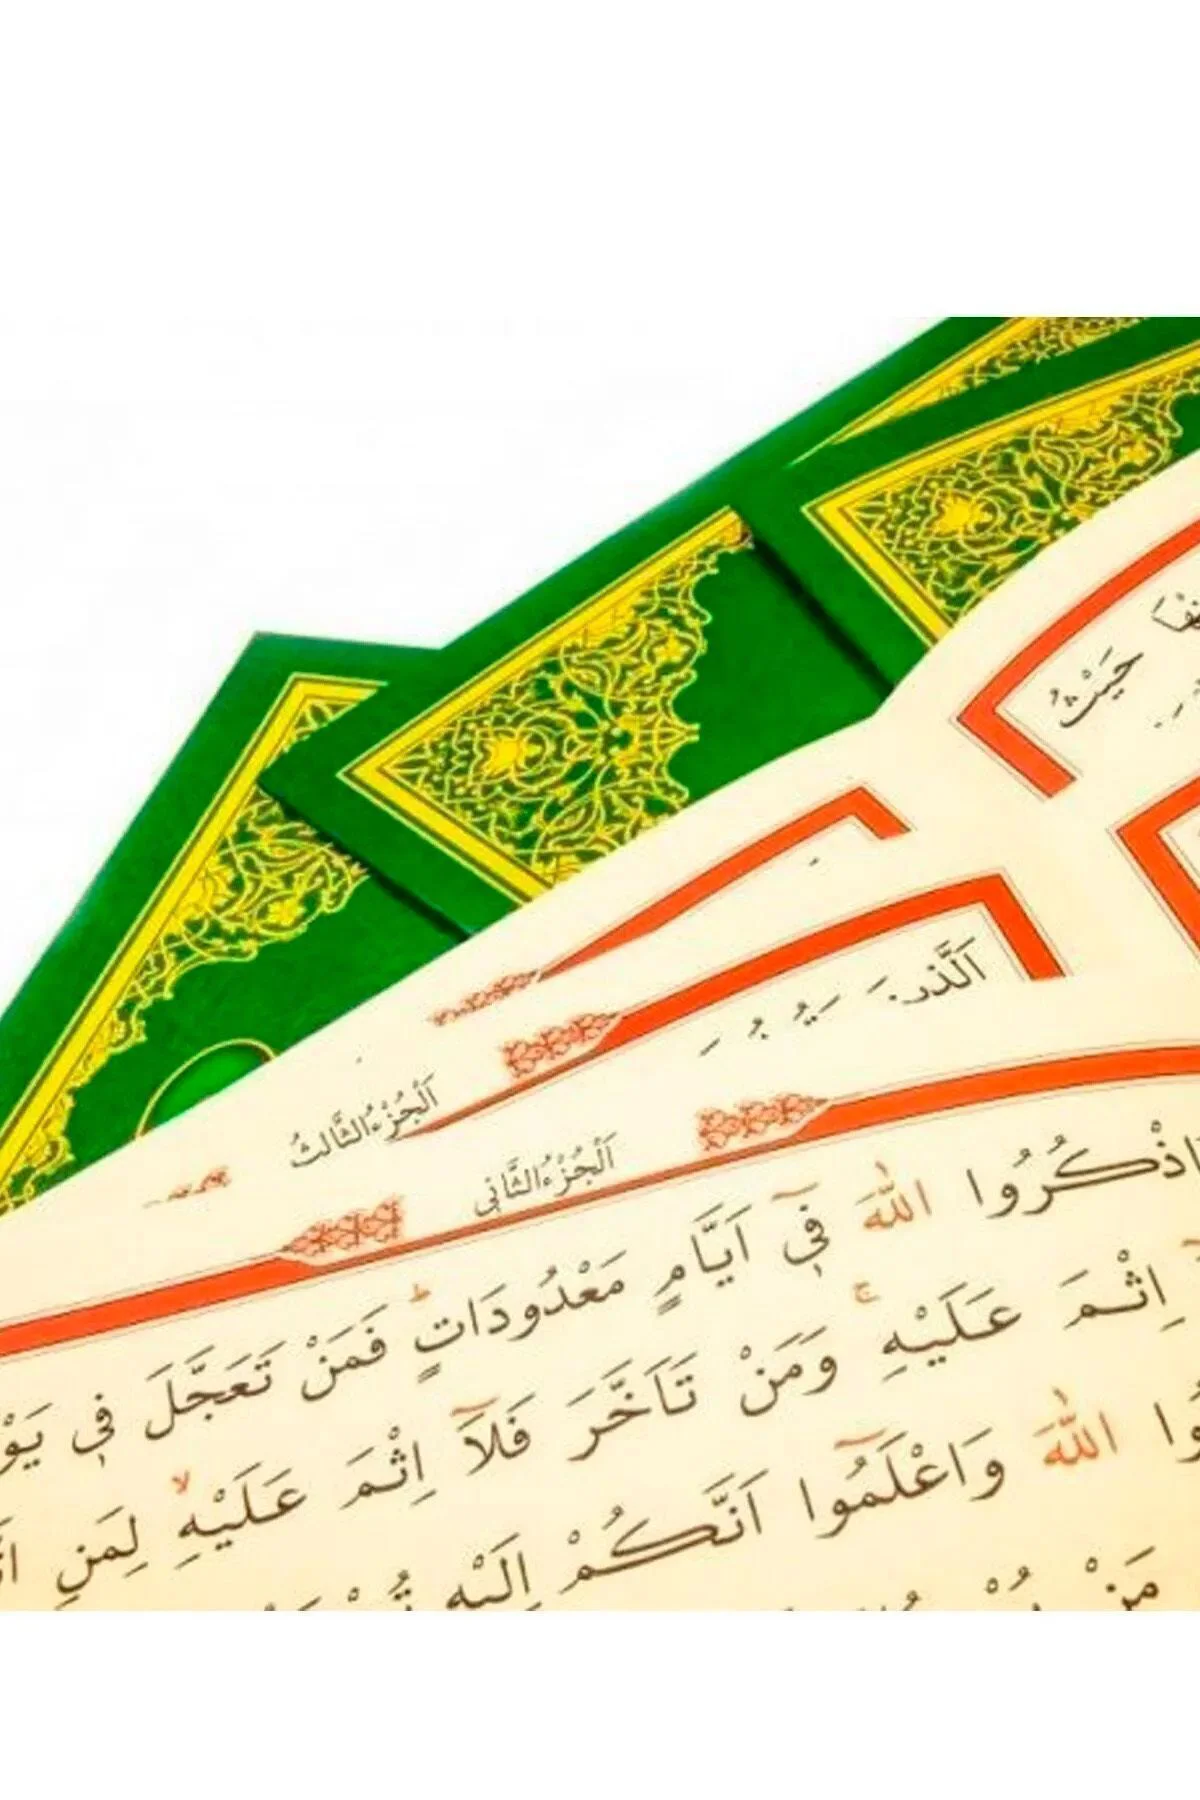 حَيْثُ
اَلَّذ۪ينَ
اَلْجُزْءُ الثَّالِثُ
اَلْجُزْءُ الثَّانِي
اذْكُرُوا اللّٰهَ ف۪ٓي اَيَّامٍ مَعْدُودَاتٍۜ فَمَنْ تَعَجَّلَ ف۪ي
اِثْمَ عَلَيْهِۚ وَمَنْ تَاَخَّرَ فَلَٓا اِثْمَ عَلَيْهِۙ لِمَنِ
اللّٰهَ وَاعْلَمُٓوا اَنَّكُمْ اِلَيْهِ